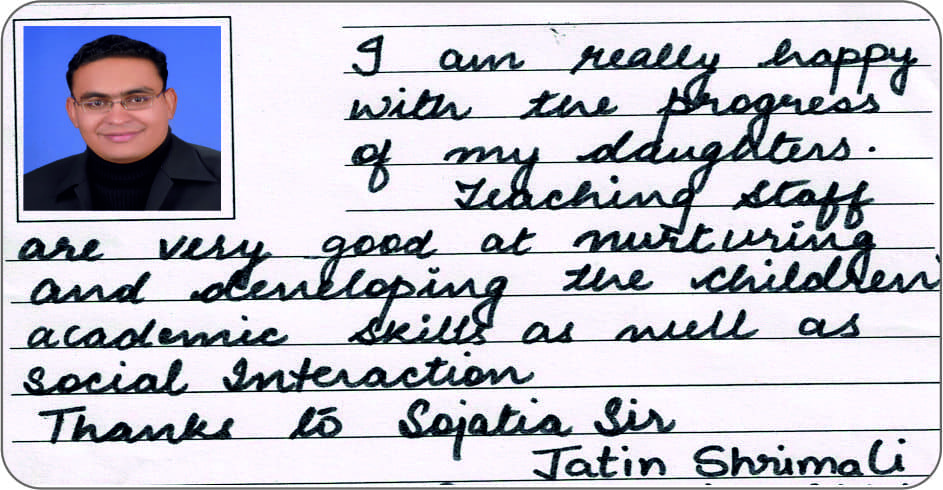 I am really happy
with the progress
of my daughters.
Teaching Staff
are very good at nurturing
and developing the children
academic skills as well as
social Interaction
Thanks to Sojatia Sir
Jatin Shrimali